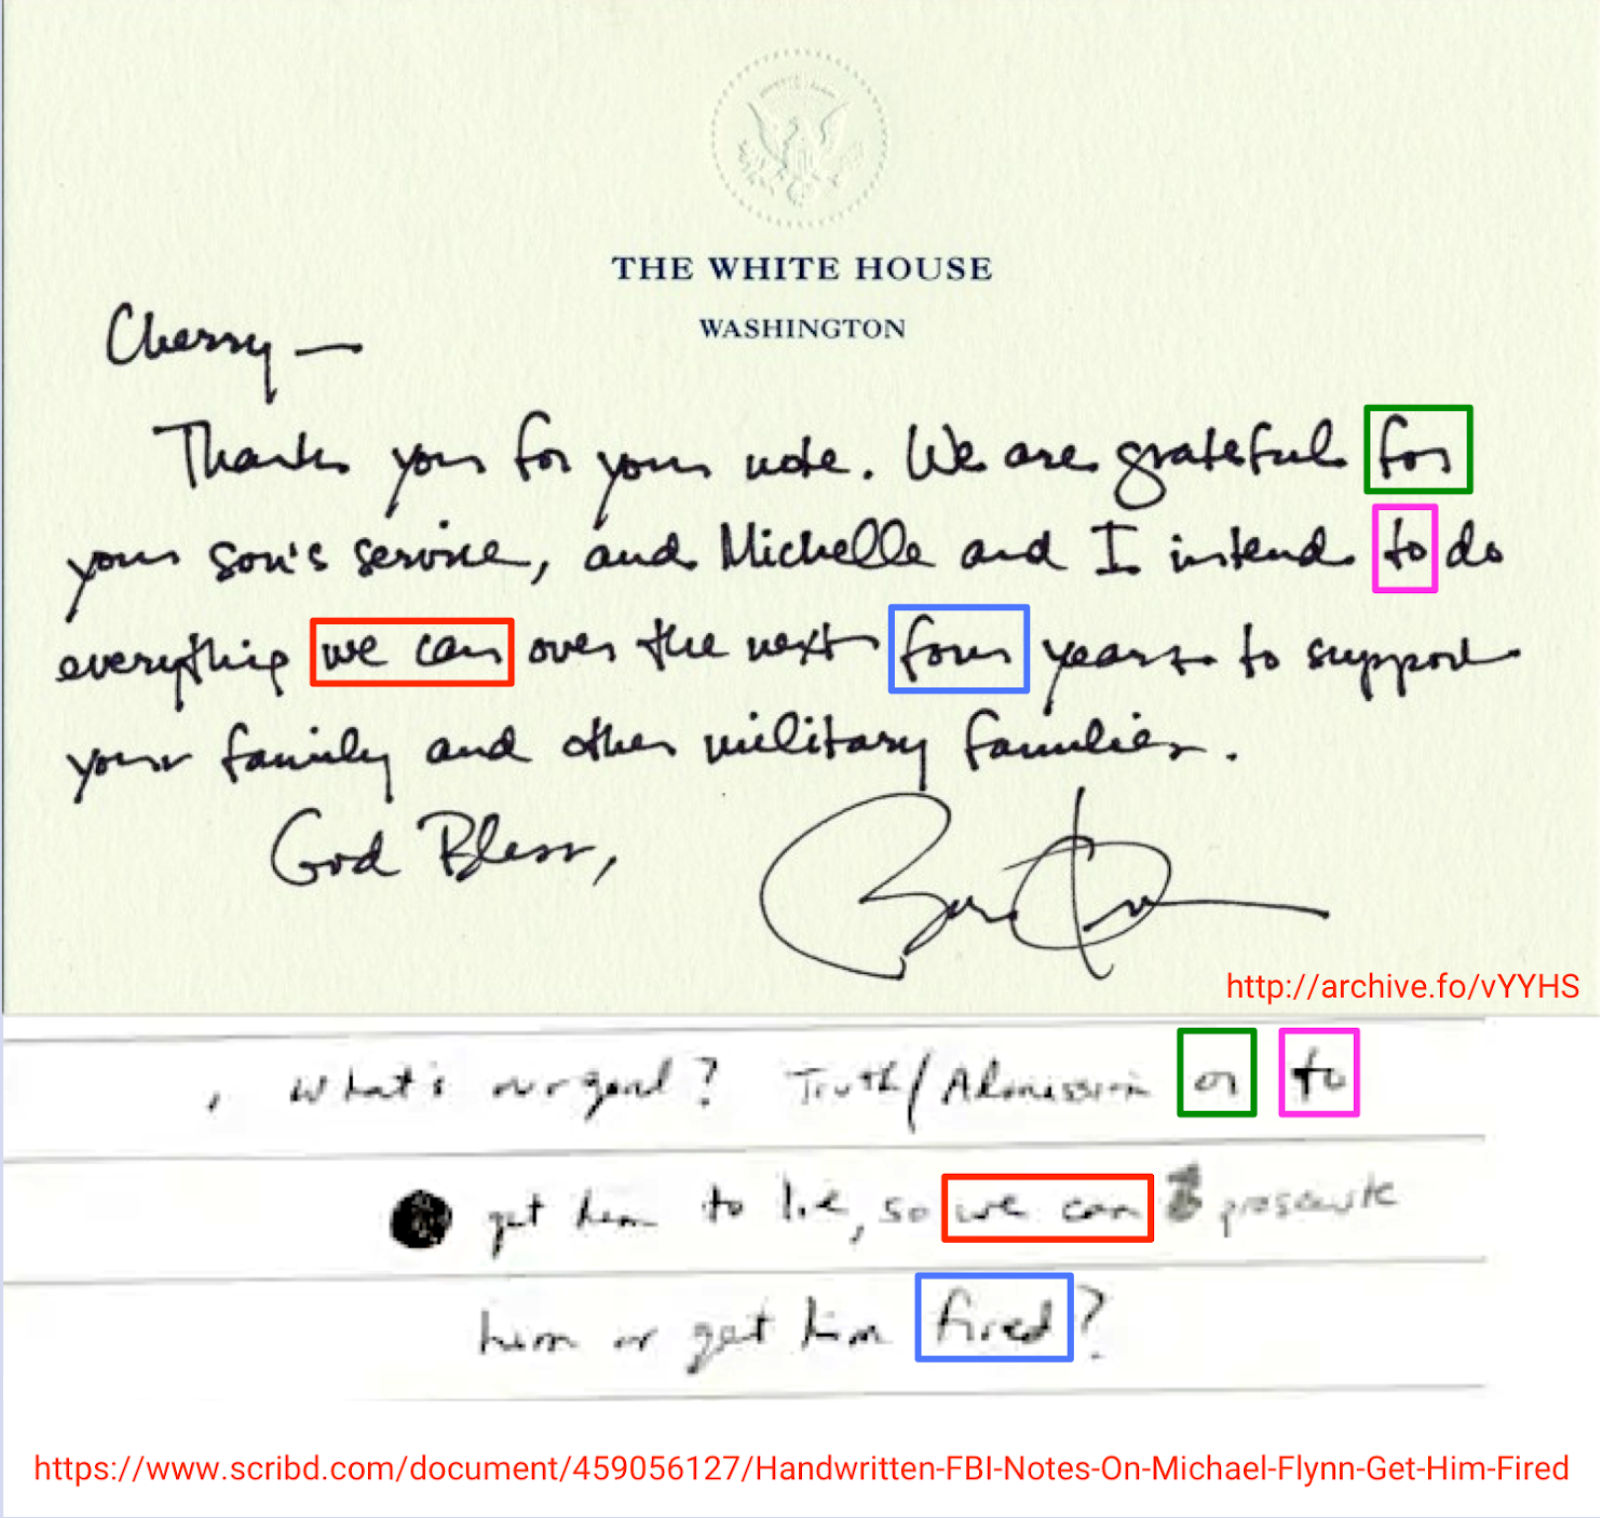 THE WHITE HOUSE
WASHINGTON
Cherry —
Thank you for your note. We are grateful for
your son's service, and Michelle and I intend to do
everything we can over the next four years to support
your family and other military families.
God Bless,
http://archive.fo/vYYHS
, What's our goal? Truth/Admission or to
get him to lie, so we can prosecute
him or get him fired?
https://www.scribd.com/document/459056127/Handwritten-FBI-Notes-On-Michael-Flynn-Get-Him-Fired